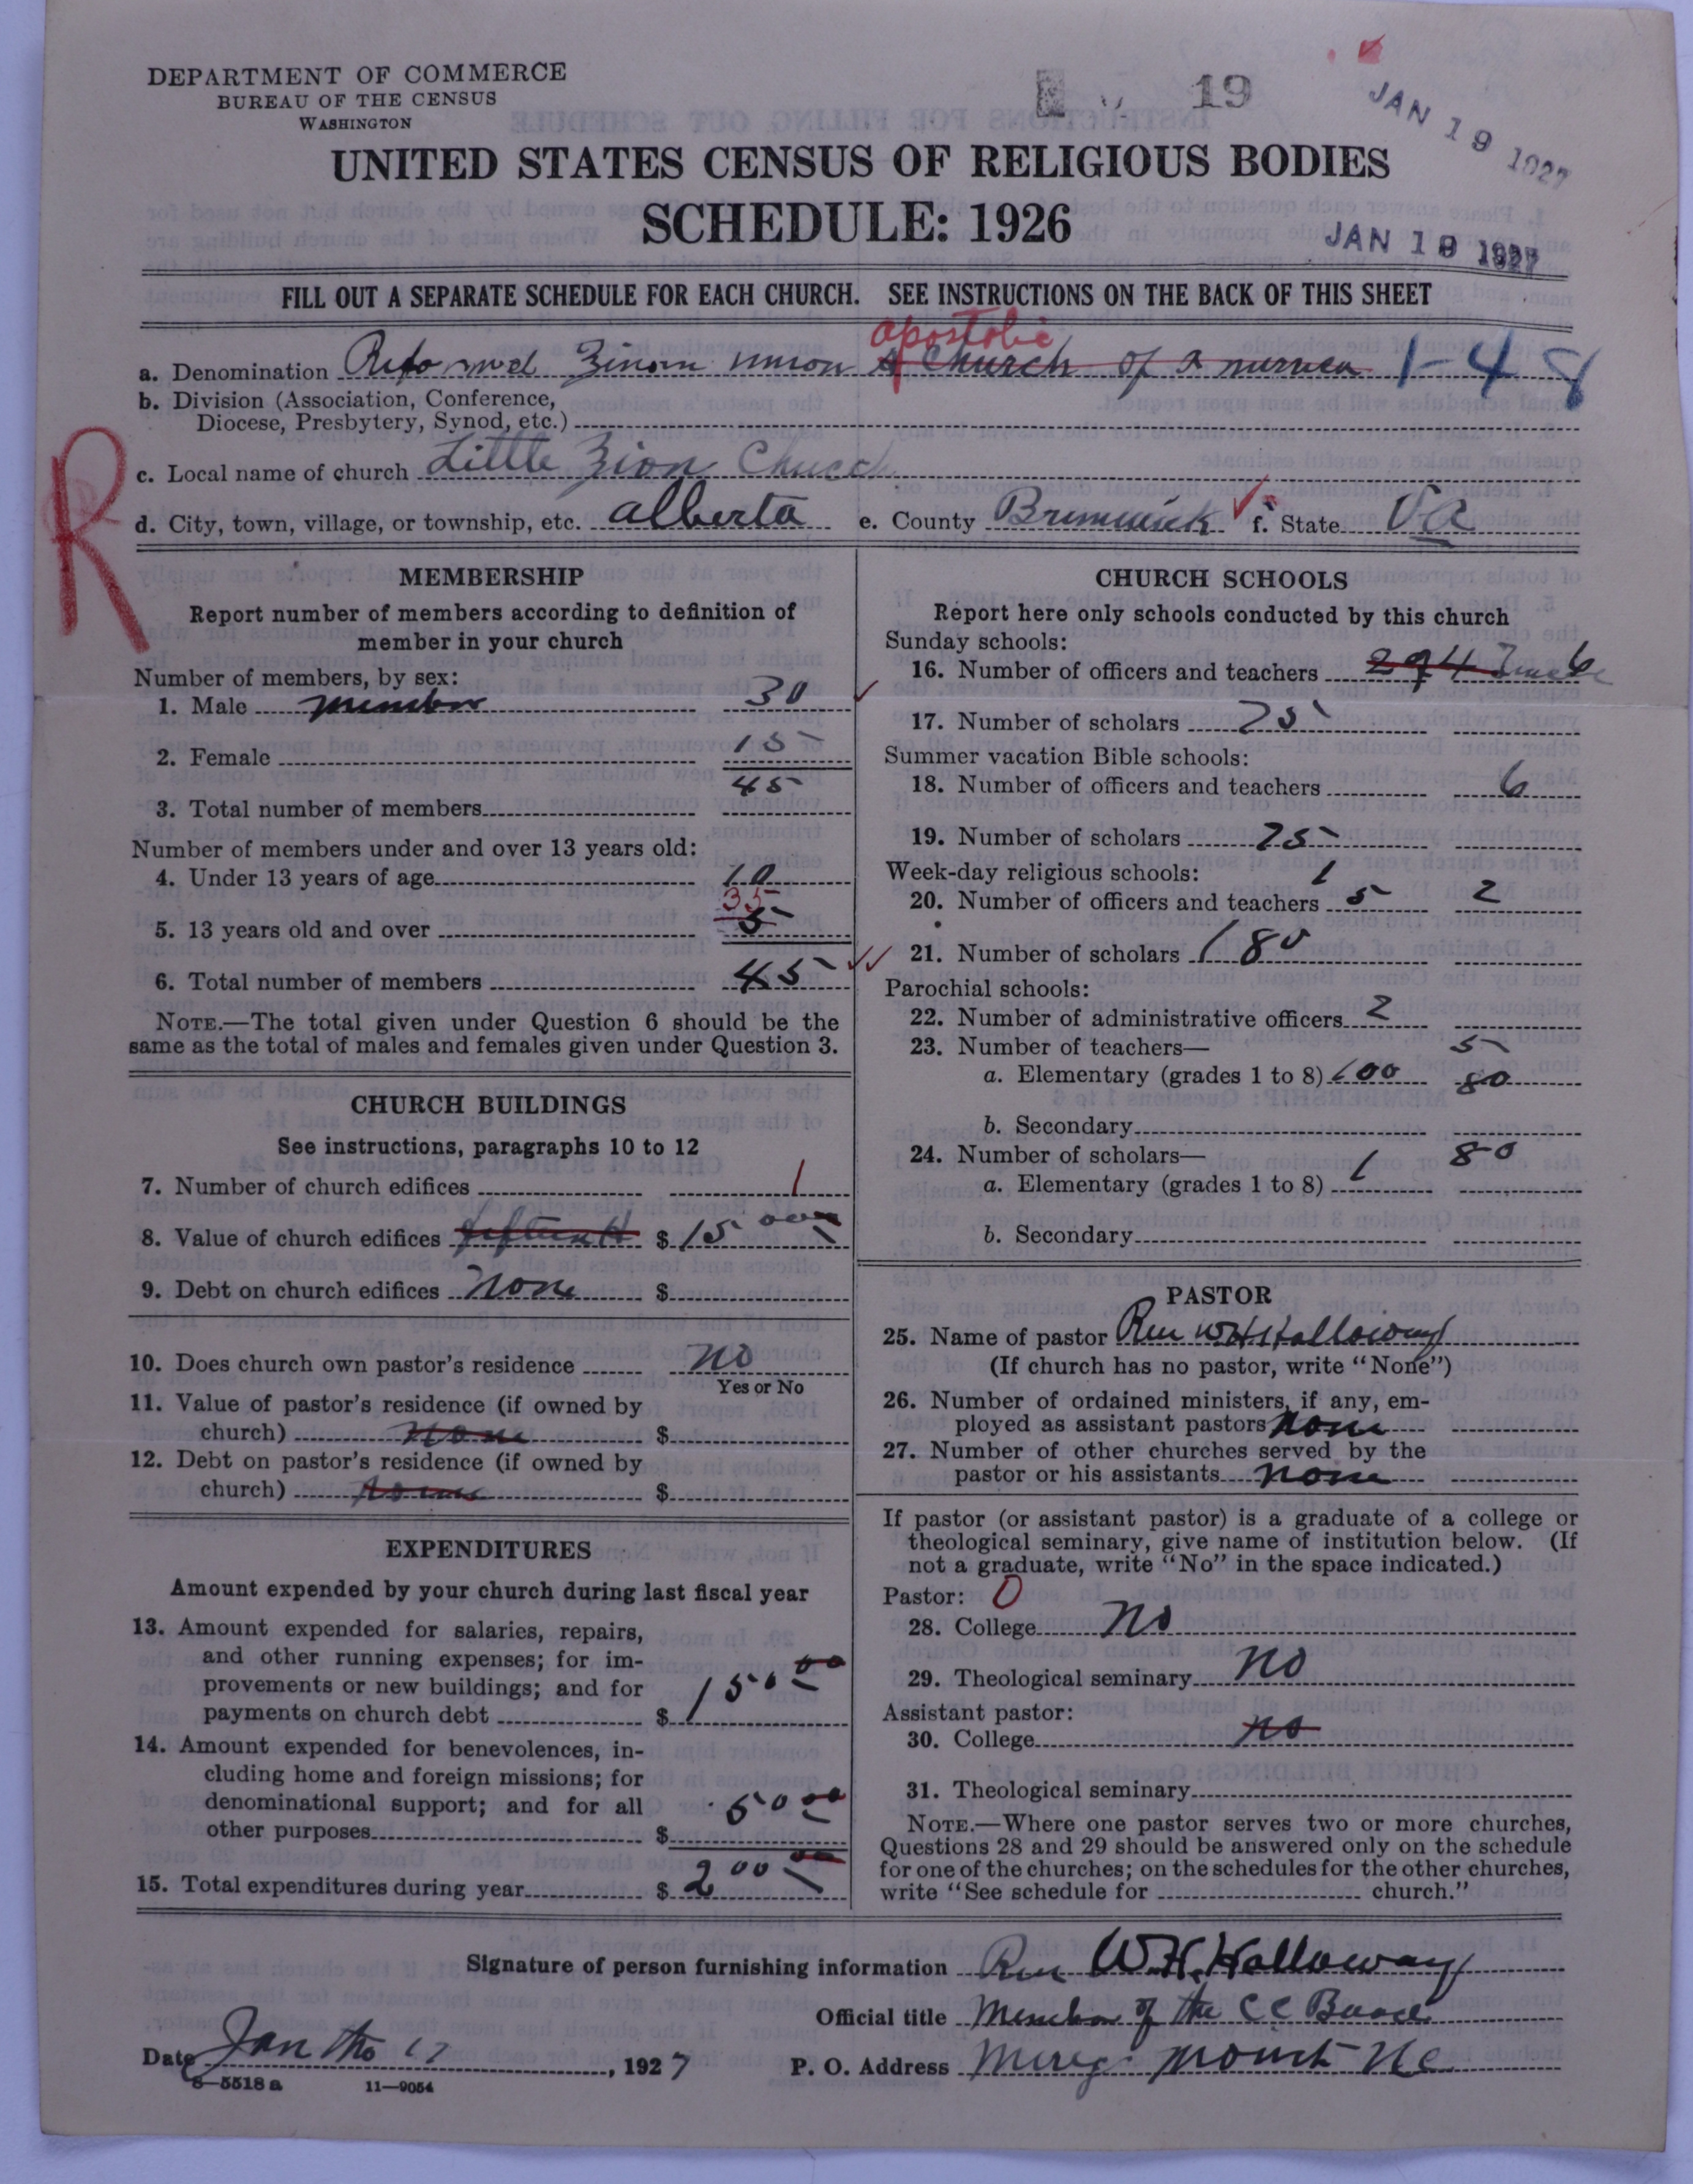 DEPARTMENT OF COMMERCE
BUREAU OF THE CENSUS
WASHINGTON
19
JAN 19 1927
UNITED STATES CENSUS OF RELIGIOUS BODIES
SCHEDULE: 1926
JAN 19 1927
FILL OUT A SEPARATE SCHEDULE FOR EACH CHURCH. SEE INSTRUCTIONS ON THE BACK OF THIS SHEET
apostolic
a. Denomination Reformed Zion union A Church of 1-48
b. Division (Association, Conference,
Diocese, Presbytery, Synod, etc.)
c. Local name of church Little Zion Church
d. City, town, village, or township, etc. alberta e. County Brunswick f. State Va
R
MEMBERSHIP
Report number of members according to definition of
member in your church
Number of members, by sex:
1. Male member 30
2. Female 15
45
3. Total number of members
Number of members under and over 13 years old:
4. Under 13 years of age 10
35
5. 13 years old and over 5
6. Total number of members 45
NOTE.—The total given under Question 6 should be the
same as the total of males and females given under Question 3.
CHURCH BUILDINGS
See instructions, paragraphs 10 to 12
7. Number of church edifices 1
8. Value of church edifices $ 15 00
9. Debt on church edifices none $
10. Does church own pastor's residence no
Yes or No
11. Value of pastor's residence (if owned by
church) none $
12. Debt on pastor's residence (if owned by
church) none $
EXPENDITURES
Amount expended by your church during last fiscal year
13. Amount expended for salaries, repairs,
and other running expenses; for im-
provements or new buildings; and for
payments on church debt $ 150 00
14. Amount expended for benevolences, in-
cluding home and foreign missions; for
denominational support; and for all
other purposes $ 50 00
15. Total expenditures during year $ 200 00
CHURCH SCHOOLS
Report here only schools conducted by this church
Sunday schools:
16. Number of officers and teachers 294 6
17. Number of scholars 25
Summer vacation Bible schools:
18. Number of officers and teachers 6
19. Number of scholars 25
Week-day religious schools: 1
20. Number of officers and teachers 5 2
21. Number of scholars 180
Parochial schools:
22. Number of administrative officers 2
23. Number of teachers— 5
a. Elementary (grades 1 to 8) 100 80
b. Secondary
24. Number of scholars— 80
a. Elementary (grades 1 to 8) 1
b. Secondary
PASTOR
25. Name of pastor Rev W H Holloway
(If church has no pastor, write "None")
26. Number of ordained ministers, if any, em-
ployed as assistant pastors none
27. Number of other churches served by the
pastor or his assistants none
If pastor (or assistant pastor) is a graduate of a college or
theological seminary, give name of institution below. (If
not a graduate, write "No" in the space indicated.)
Pastor: 0
28. College no
29. Theological seminary no
Assistant pastor:
30. College no
31. Theological seminary
NOTE.—Where one pastor serves two or more churches,
Questions 28 and 29 should be answered only on the schedule
for one of the churches; on the schedules for the other churches,
write "See schedule for church."
Signature of person furnishing information Rev W.H. Holloway
Official title Member of the C C Board
Date Jan the 17, 1927 P. O. Address mount NC
8—5518 a 11—9054